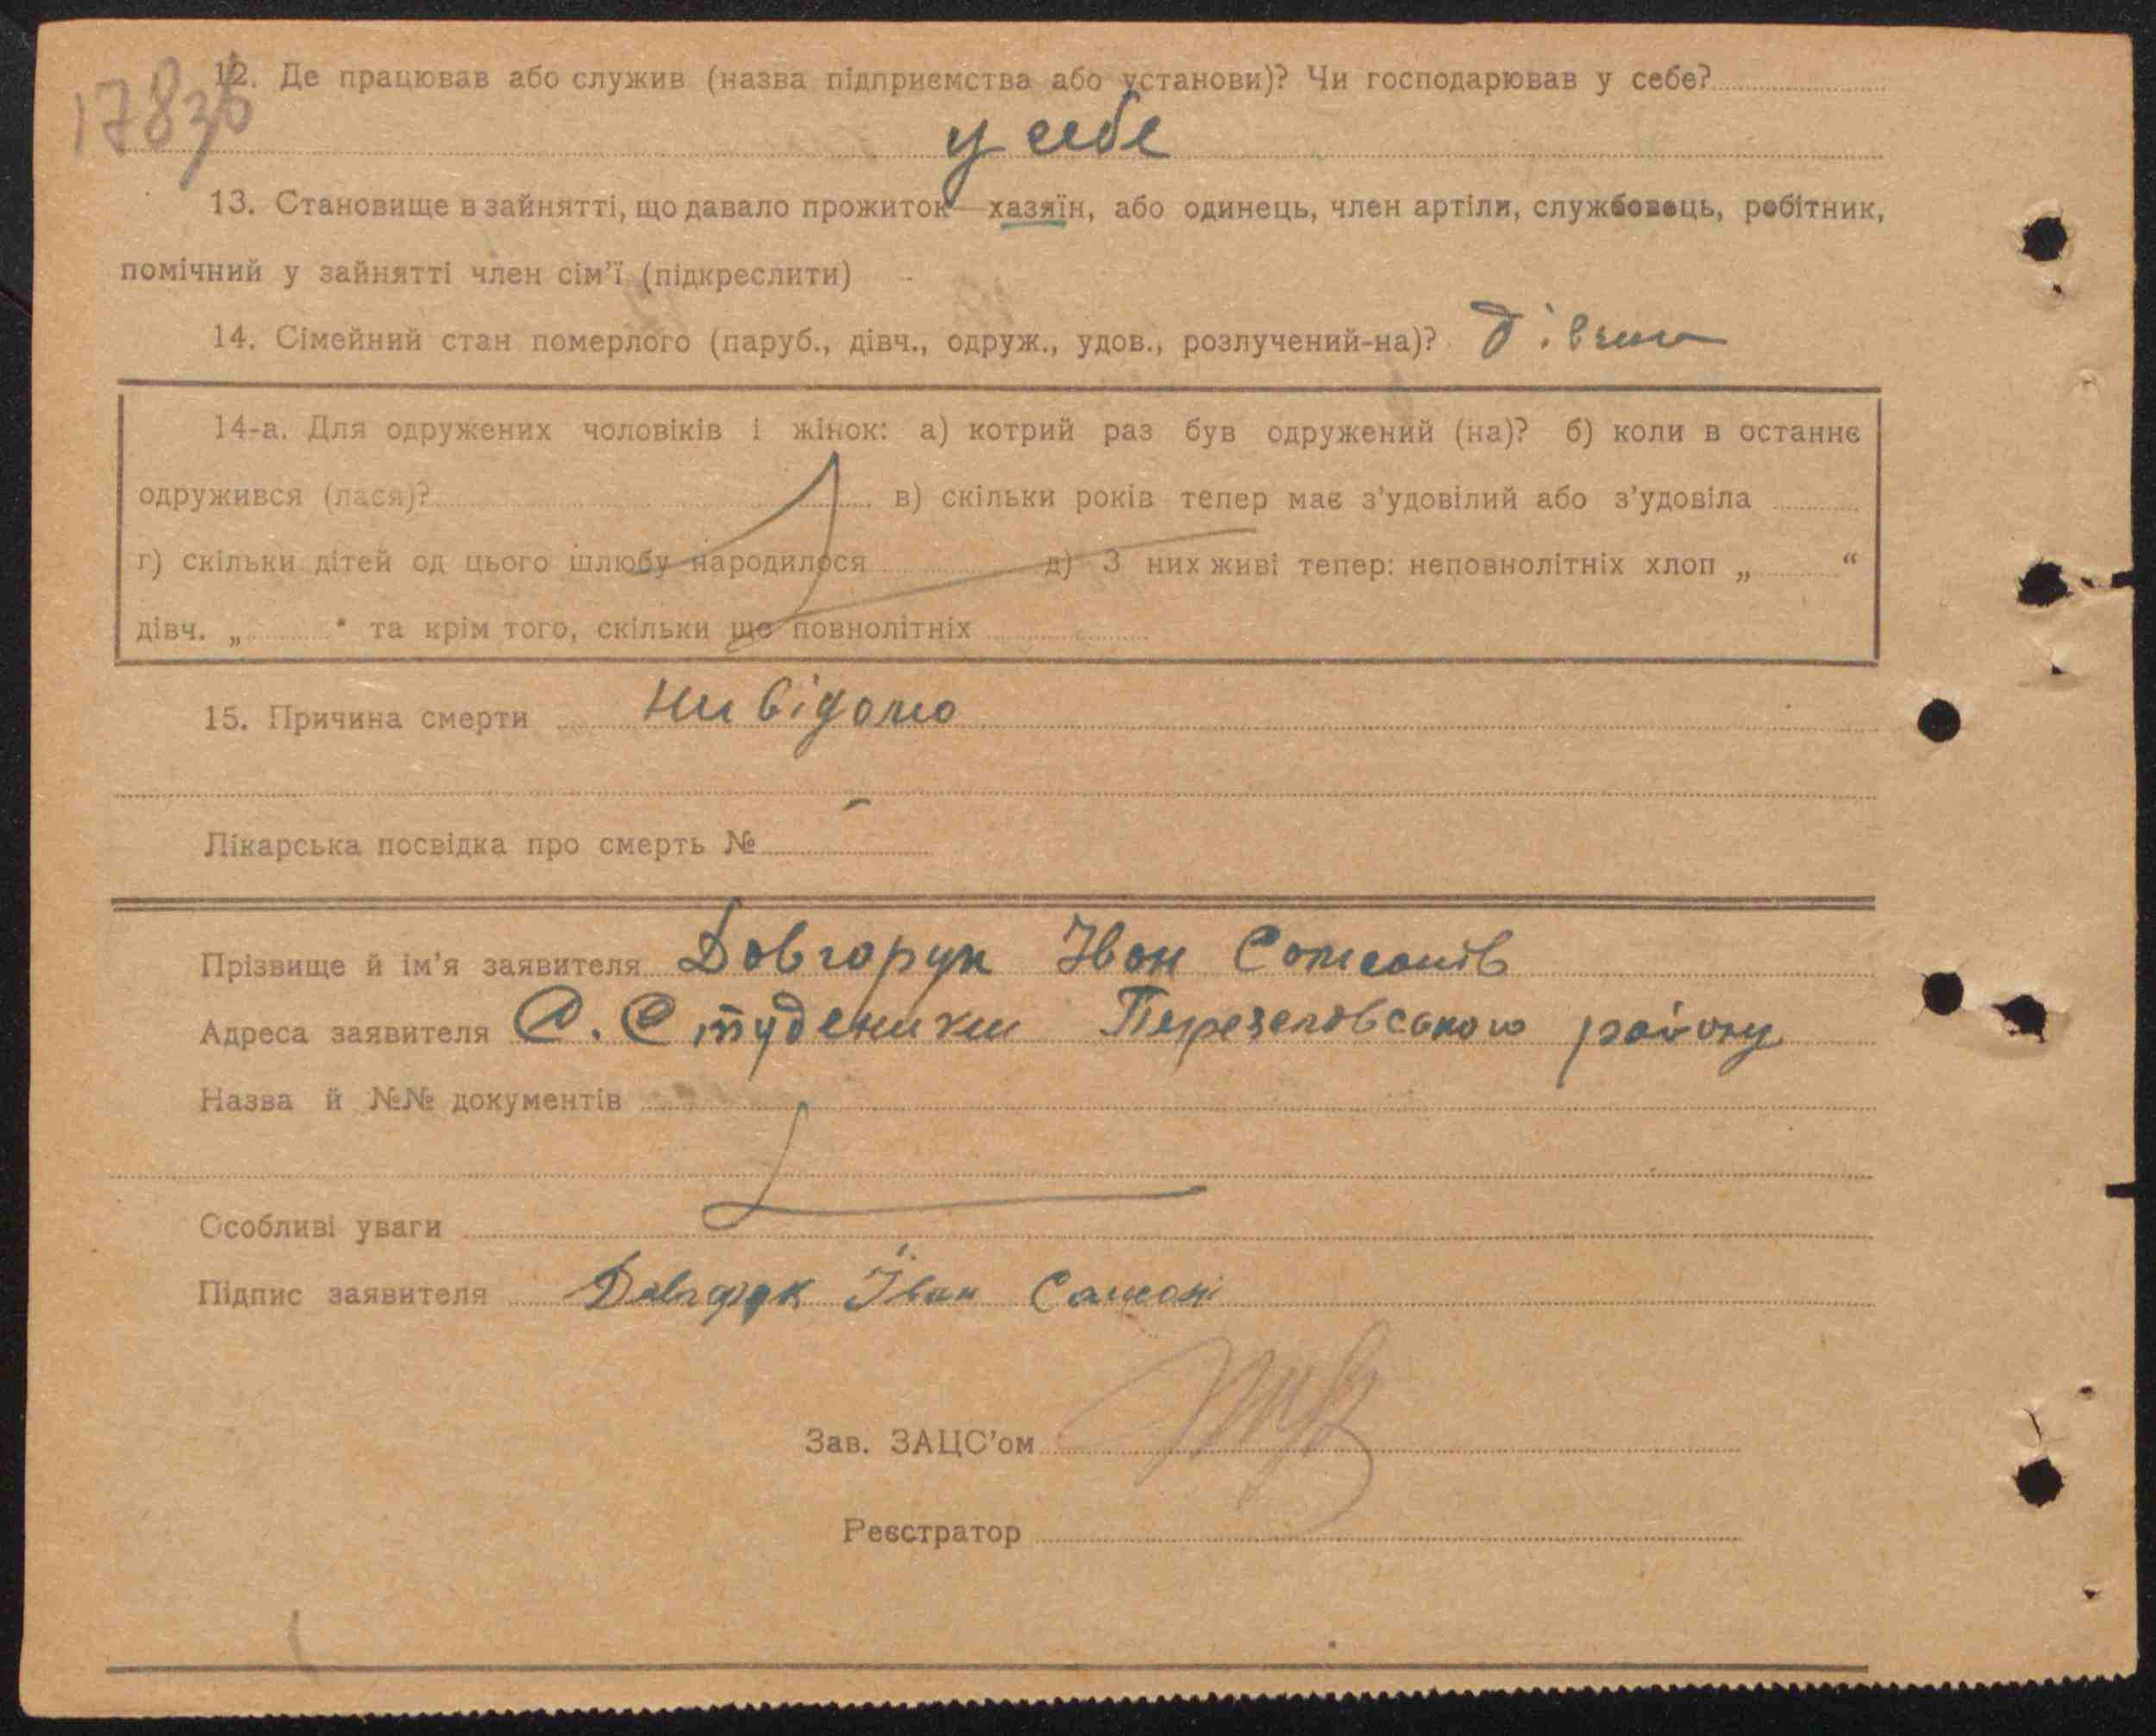 178зб
12. Де працював або служив (назва підприємства або установи)? Чи господарював у себе?
у себе
13. Становище в зайнятті, що давало прожиток—хазяїн, або одинець, член артіли, службовець, робітник,
помічний у зайнятті член сім'ї (підкреслити)
14. Сімейний стан померлого (паруб., дівч., одруж., удов., розлучений-на)? дівчин
14-а. Для одружених чоловіків і жінок: а) котрий раз був одружений (на)? б) коли в останнє
одружився (лася)? в) скільки років тепер має з'удовілий або з'удовіла
г) скільки дітей од цього шлюбу народилося д) З них живі тепер: неповнолітніх хлоп „ “
дівч. „ “ та крім того, скільки ще повнолітніх
15. Причина смерти Ни відомо
Лікарська посвідка про смерть № -
Прізвище й ім'я заявителя Довгорук Іван Самсонів
Адреса заявителя С. Студеники Переяслівського району
Назва й №№ документів
Особливі уваги
Підпис заявителя Довгорук Іван Самсон
Зав. ЗАЦС'ом
Реєстратор